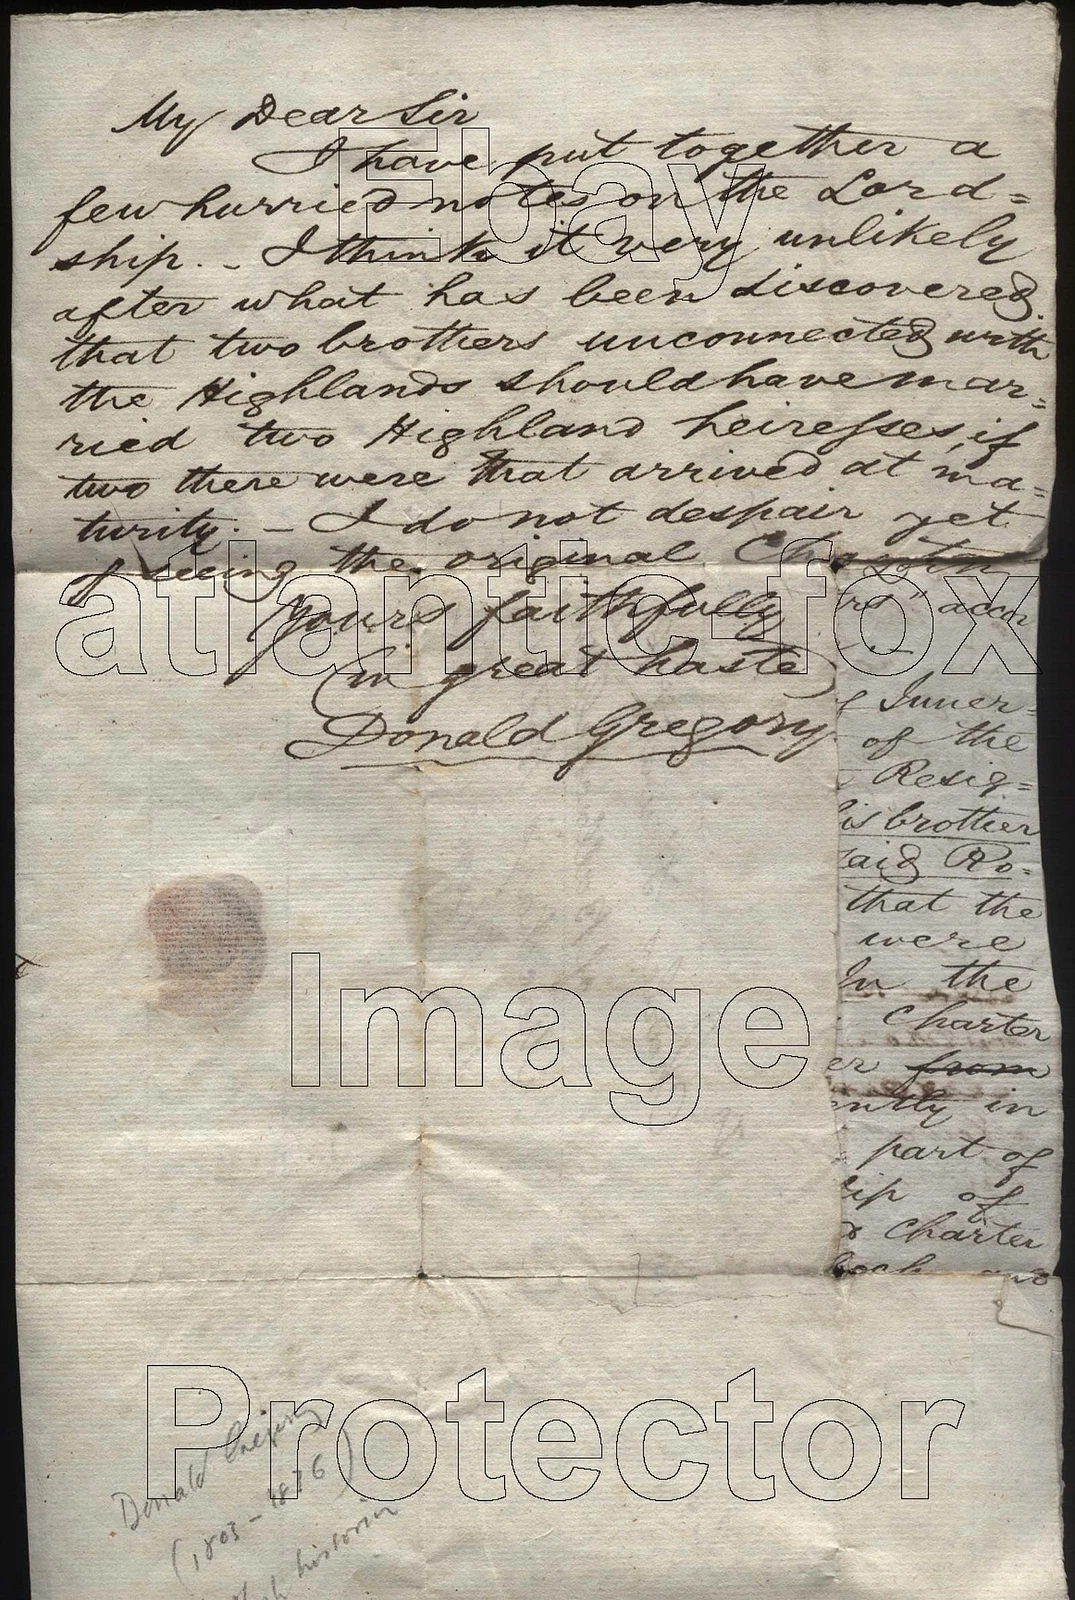 My Dear Sir
I have put together a
few hurried notes on the Lord=
ship. - I think it very unlikely
after what has been discovered
that two brothers unconnected with
the Highlands should have mar=
ried two Highland heiresses, if
two there were that arrived at ma=
turity. - I do not despair yet
of seeing the original Charters
Yours faithfully
(in great haste)
Donald Gregory
rs" accor
Inner=
of the
Resig=
his brother
said Ro=
that the
were
In the
Charter
er from
ently in
part of
ip of
Charter
and
Donald Gregory
(1803 - 1836)
historian
Ebay
atlantic-fox
Image
Protector